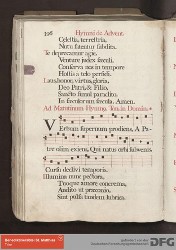 326 Hymni de Advent.
Cælestia, terrestria,
Nutu fatentur subdita.
Te deprecamur agie,
Venture judex sæculi,
Conserva nos in tempore
Hostis a telo perfidi.
Laus, honor, virtus, gloria,
Deo Patri, & Filio,
Sancto simul paraclito,
In sæculorum sæcula. Amen.
Ad Matutinum Hymng. Ton. in Domin.
Verbum supernum prodiens, A Pa-
tre olim exiens, Qui natus orbi subvenis
Cursu declivi temporis.
Illumina nunc pectora,
Tuoque amore concrema,
Audito ut præconio,
Sint pulsa tandem lubrica.
DFG